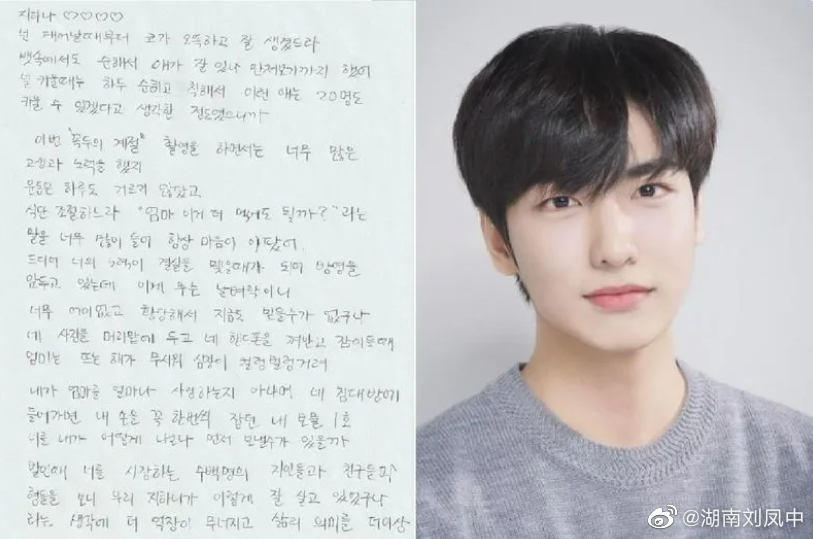 지하나 ♡♡♡♡
넌 태어날때부터 코가 오뚝하고 잘 생겼드라
뱃속에서도 순해서 얘가 잘 있나 만져보기까지 했어
널 키울때는 하두 순하고 착해서 이런 애는 20명도
키울 수 있겠다고 생각한 정도였으니까
이번 "꼭두의 계절" 촬영을 하면서는 너무 많은
고생과 노력을 했지
운동은 하루도 거르지 않았고
식단 조절하느라 "엄마 이게 더 먹어도 될까?" 라는
말을 너무 많이 들어 항상 마음이 아팠어
드디어 너의 노력이 결실을 맺을때가 되어 방영을
앞두고 있는데 이게 무슨 날벼락이니
너무 어이없고 황당해서 지금도 믿을수가 없구나
네 사진을 머리맡에 두고 네 핸드폰을 껴안고 잠이들때
엄마는 뜨는 해가 무서워 심장이 컬렁벌렁거려
내가 엄마를 얼마나 사랑하는지 아냐며 네 침대방에
들어가면 내 손을 꼭 한번씩 잡던 내 보물 1호
너를 내가 어떻게 나보다 먼저 보낼수가 있을까
발인에 너를 시장하는 수백명의 지인들과 친구들과
형들을 보니 우리 지하나가 이렇게 잘 살고 있었구나
라는 생각에 더 억장이 무너지고 삶의 의미를 더이상
@湖南刘凤中